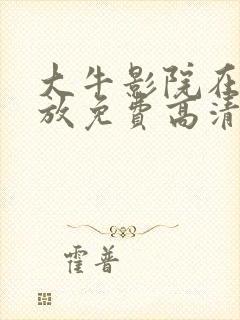 大牛影院在
放免费高清
霍普